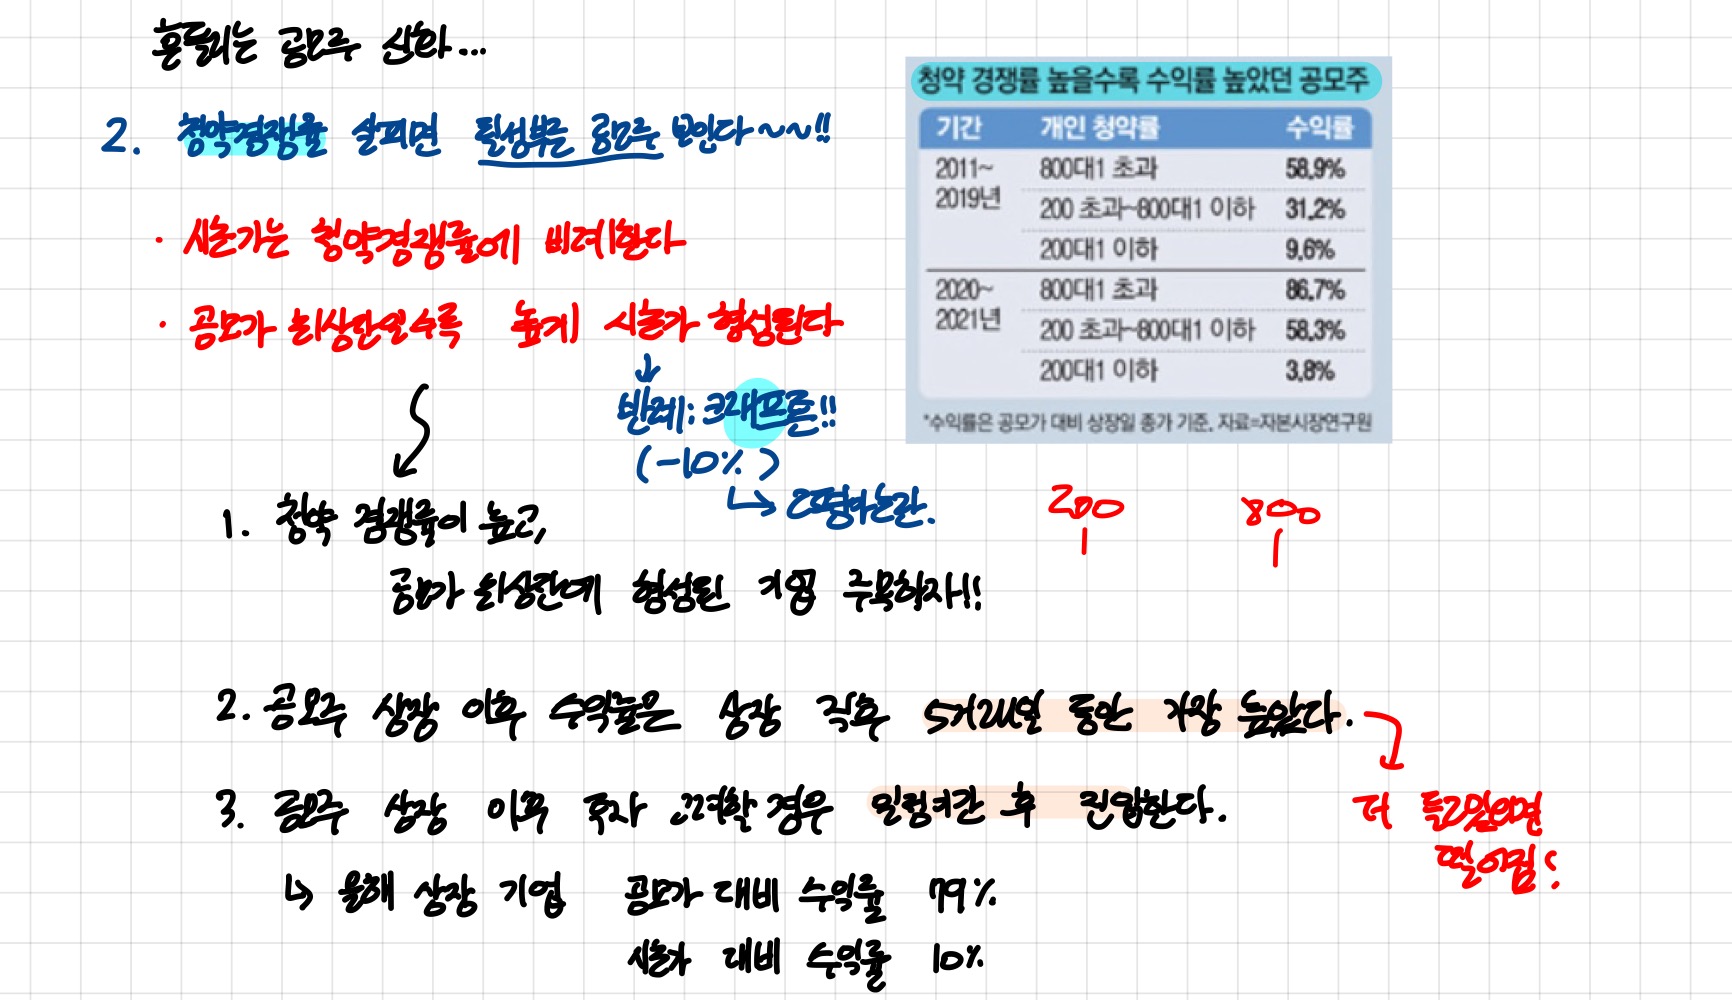 흔들리는 공모주 신화...
2. 청약경쟁율 살피면 될성부른 공모주 보인다~~!!
· 시초가는 청약경쟁률에 비례한다
· 공모가 최상단일수록 높게 시초가 형성된다
반례: 크래프톤!!
(-10%)
↳ 고평가논란.
1. 청약 경쟁률이 높고,
공모가 최상단에 형성된 기업 주목하자!!
2. 공모주 상장 이후 수익률은 상장 직후 5거래일 동안 가장 높았다.
더 들고있으면
떨어짐!
3. 공모주 상장 이후 투자 고려할 경우 일정기간 후 진입한다.
↳ 올해 상장 기업 공모가 대비 수익률 79%
시초가 대비 수익률 10%
청약 경쟁률 높을수록 수익률 높았던 공모주
기간 개인 청약률 수익률
2011~ 800대1 초과 58.9%
2019년 200 초과~800대1 이하 31.2%
200대1 이하 9.6%
2020~ 800대1 초과 86.7%
2021년 200 초과~800대1 이하 58.3%
200대1 이하 3.8%
*수익률은 공모가 대비 상장일 종가 기준, 자료=자본시장연구원
200 800